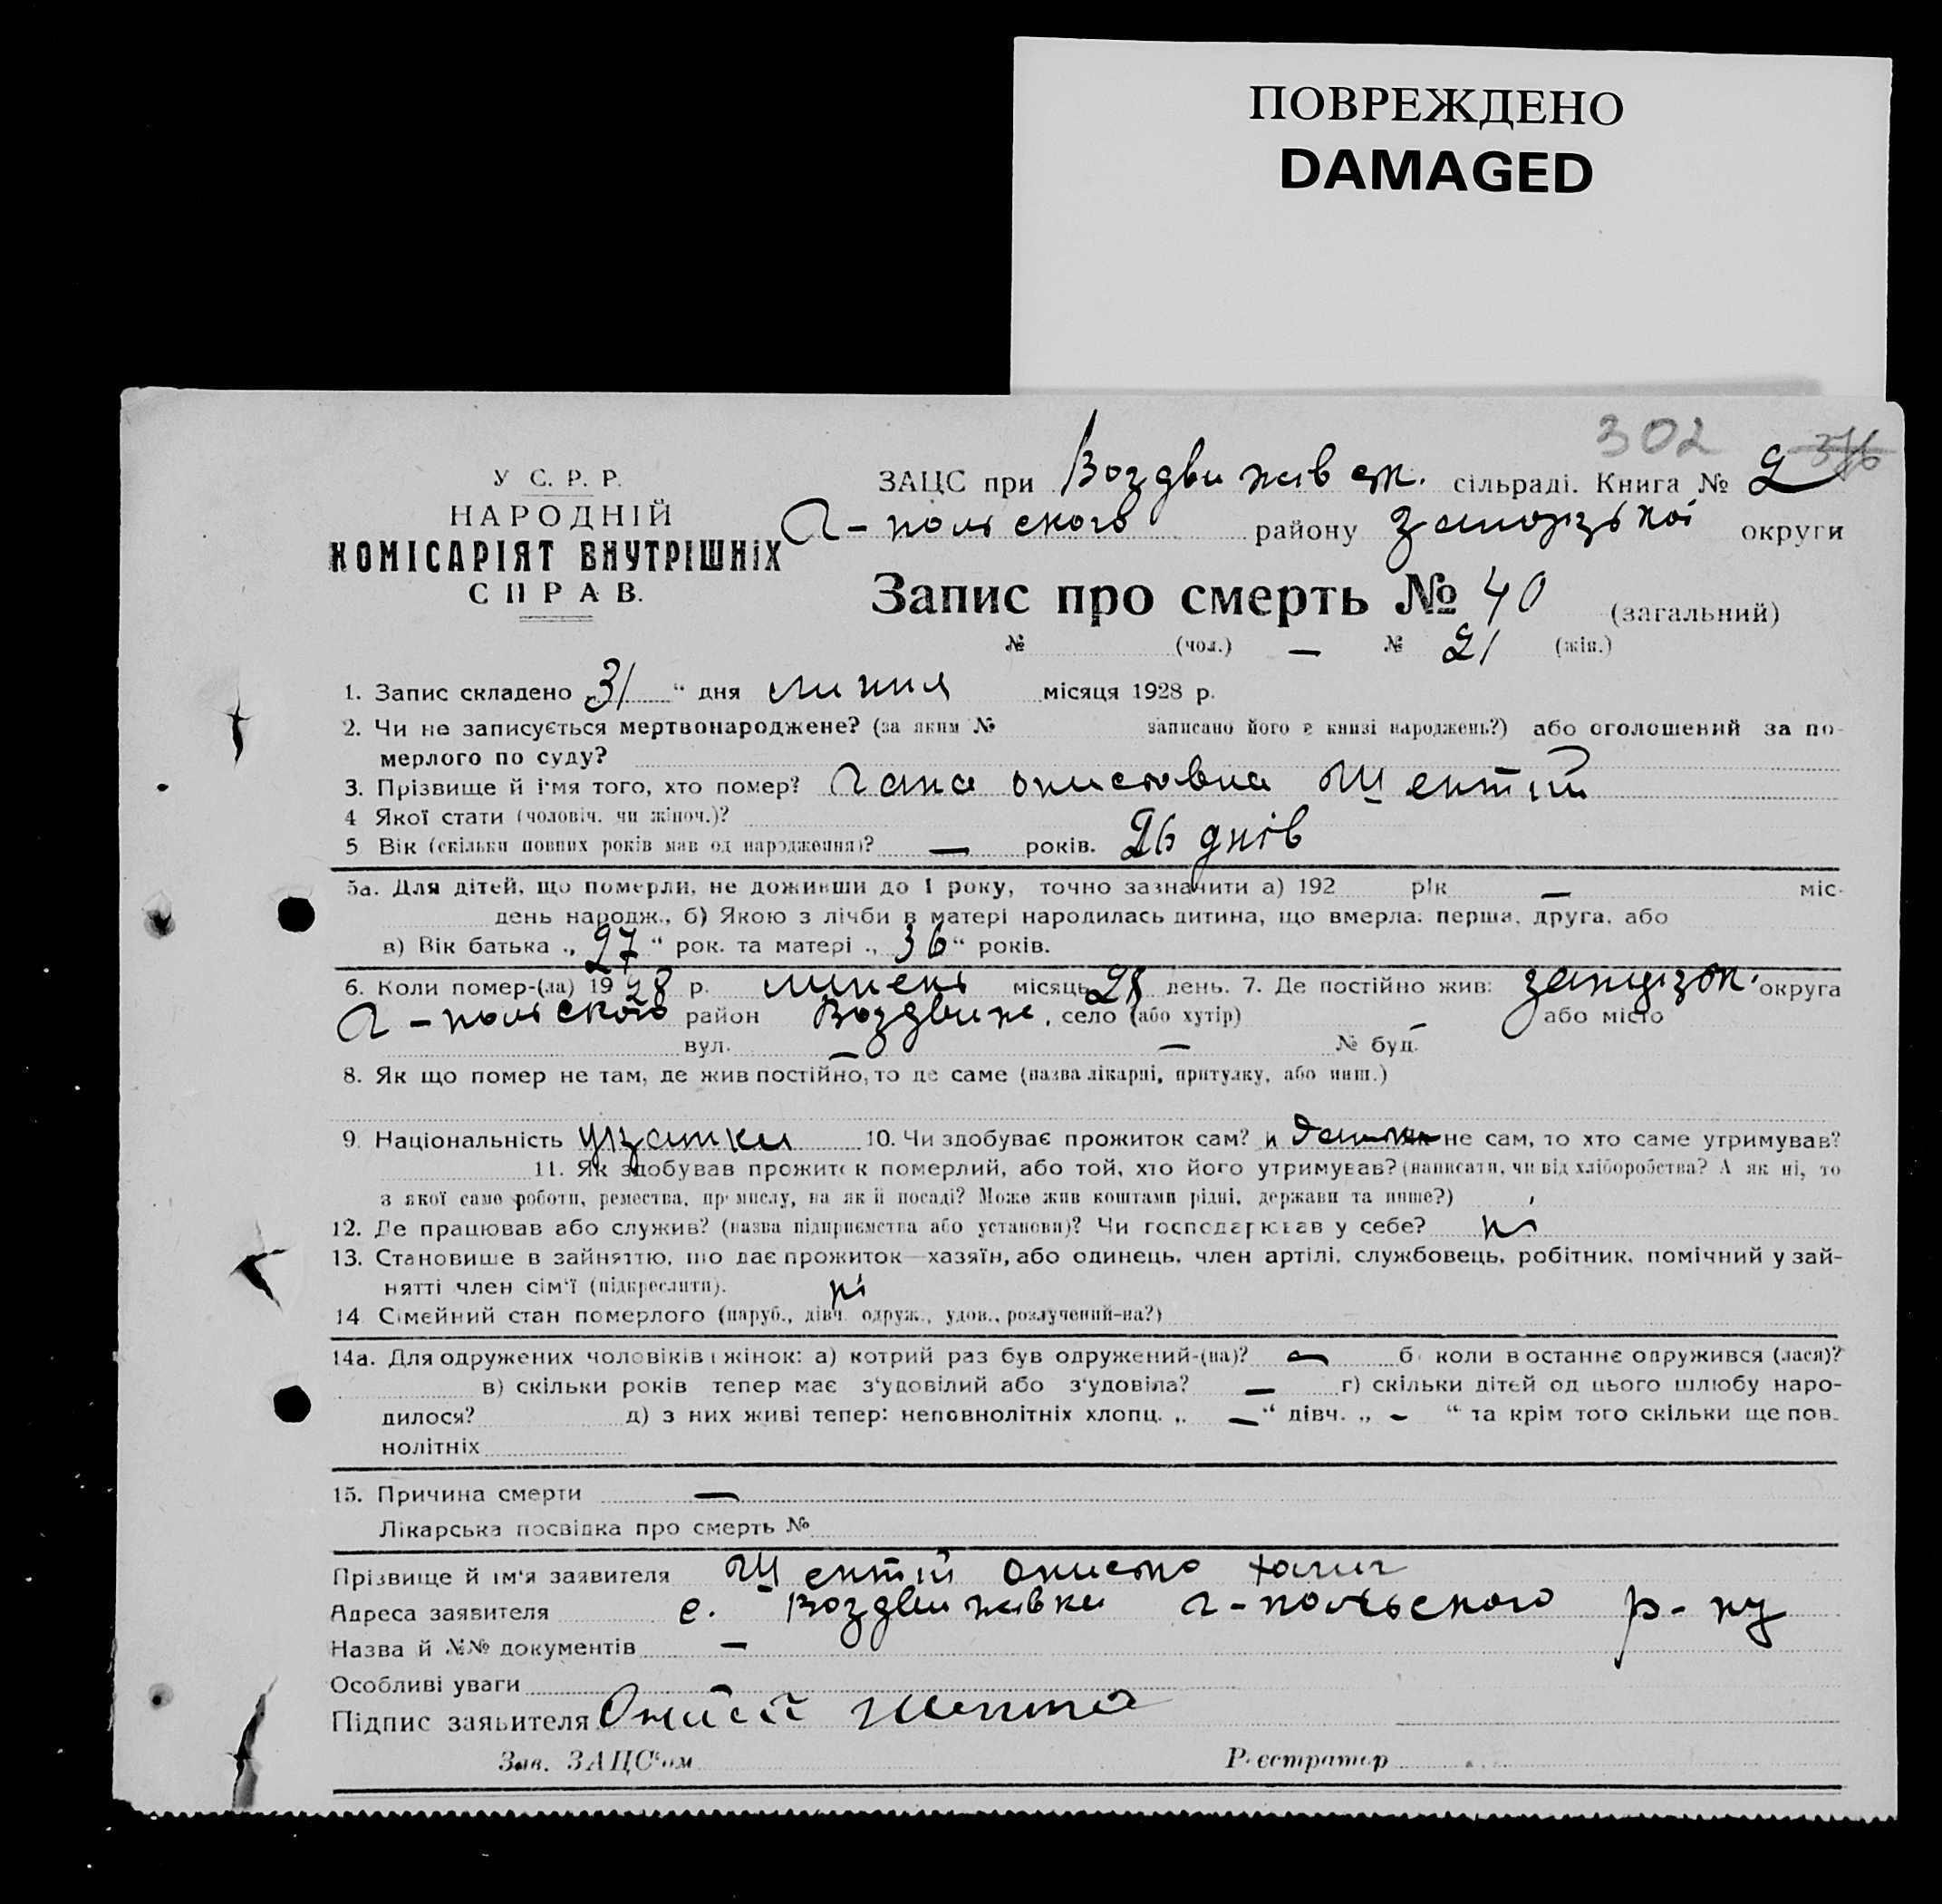 ПОВРЕЖДЕНО
DAMAGED
302
У С. Р. Р.
НАРОДНІЙ
КОМІСАРІЯТ ВНУТРІШНІХ
СПРАВ.
ЗАЦС при Воздвижівськ. сільраді. Книга № 2
Г-польского району Запорізької округи
Запис про смерть № 40 (загальний)
№ (чол.) — № 21 (жін.)
1. Запис складено „31“ дня липня місяця 1928 р.
2. Чи не записується мертвонароджене? (за яким № записано його в книзі народжень?) або оголошений за по-
мерлого по суду?
3. Прізвище й ім'я того, хто помер? Гана Шентій
4 Якої стати (чоловіч. чи жіноч.)?
5 Вік (скільки повних років мав од народження)? — років. 26 днів
5а. Для дітей, що померли, не доживши до 1 року, точно зазначити а) 192 рік — міс-
день народж., б) Якою з лічби в матері народилась дитина, що вмерла: перша, друга, або
в) Вік батька „27“ рок. та матері „36“ років.
6. Коли помер-(ла) 1928 р. липень місяць 28 день. 7. Де постійно жив: округа
Г-польского район Воздвиж, село (або хутір) — або місто
вул. — — № буд.
8. Як що помер не там, де жив постійно, то де саме (назва лікарні, притулку, або инш.)
9. Національність 10. Чи здобуває прожиток сам? не сам, то хто саме утримував?
11. Як здобував прожиток померлий, або той, хто його утримував? (написати, чи від хліборобства? А як ні, то
з якої саме роботи, ремества, промислу, на якій посаді? Може жив коштами рідні, держави та инше?)
12. Де працював або служив? (назва підприємства або установи)? Чи господарював у себе? ні
13. Становище в зайняттю, що дає прожиток—хазяїн, або одинець, член артілі, службовець, робітник, помічний у зай-
нятті член сім'ї (підкреслити). ні
14 Сімейний стан померлого (паруб., дівч. одруж., удов., розлучений-на?)
14а. Для одружених чоловіків і жінок: а) котрий раз був одружений-(на)? — б) коли в останнє одружився (лася)?
в) скільки років тепер має з'удовілий або з'удовіла? — г) скільки дітей од цього шлюбу наро-
дилося? д) з них живі тепер: неповнолітніх хлопц. „—“ дівч. „—“ та крім того скільки ще пов-
нолітніх
15. Причина смерти —
Лікарська посвідка про смерть №
Прізвище й ім'я заявителя Шентій
Адреса заявителя с. Воздвижівки Г-польського р-ну
Назва й №№ документів —
Особливі уваги
Підпис заявителя
Зав. ЗАЦС'ом Реєстратор